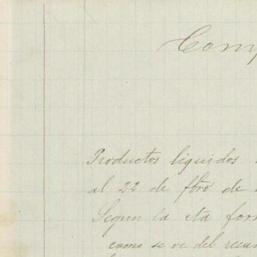 Comp
Productos liquidos
al 22 de fbro de
Segun la cta for
como se ve del resu